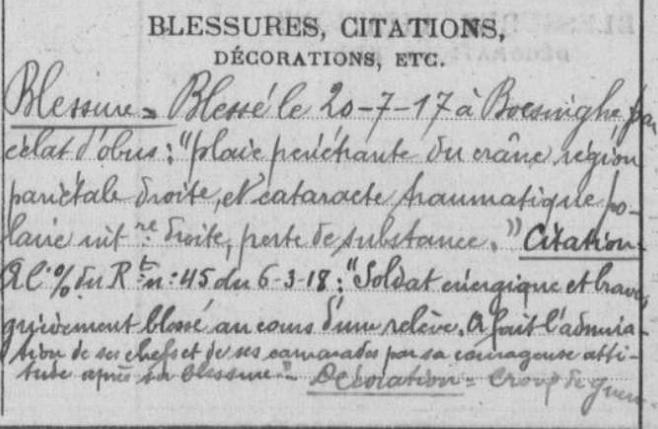 BLESSURES, CITATIONS,
DÉCORATIONS, ETC.
Blessure = Blessé le 20-7-17 à Boesinghe par
éclat d'obus : "plaie pénétrante du crâne région
pariétale droite, et cataracte traumatique po-
laire int re droite, perte de substance." Citation
à l'o/ du R t n: 45 du 6-3-18 : "Soldat énergique et brave
grièvement blessé au cours d'une relève. A fait l'admira-
tion de ses chefs et de ses camarades par sa courageuse atti-
tude après sa blessure" Décoration = Croix de guerre